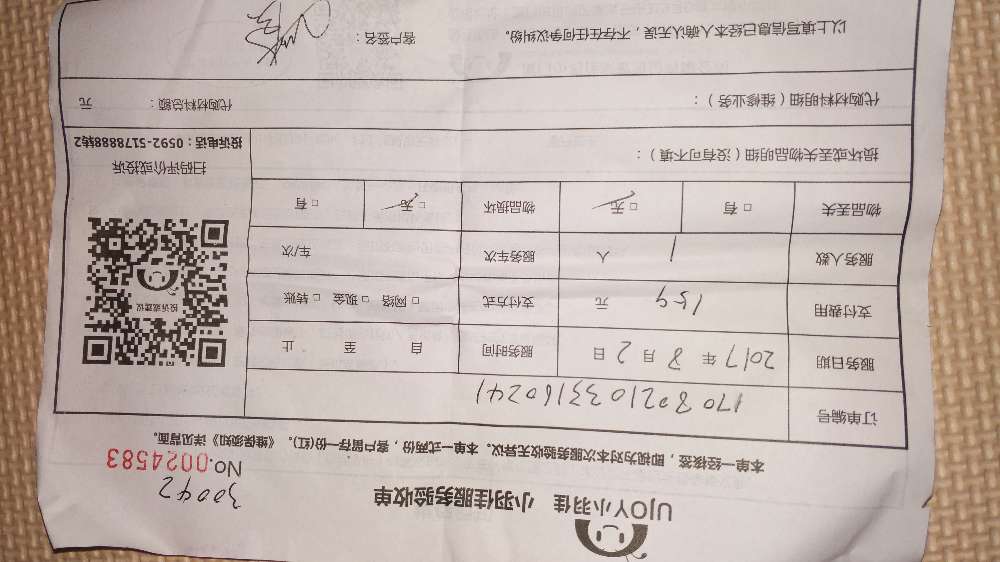 UJOY小羽佳 小羽佳服务验收单
30042
No.0024583
本单一经核签，即视为对本次服务验收无异议。本单一式两份，客户留存一份(红)。《维保须知》详见背面。
订单编号 1708021033160241
服务日期 2017年8月2日 服务时间 自 至 止
支付费用 159 元 支付方式 □ 网络 □ 现金 □ 转账
服务人数 1 人 服务车次 车/次
物品丢失 □ 有 □ 无 物品损坏 □ 无 □ 有
投诉或建议
扫码评价或投诉
投诉电话：0592-5178888转2
损坏或丢失物品明细（没有可不填）：
代购材料明细（维修业务）： 代购材料总额： 元
以上填写信息已经本人确认无误，不存在任何争议纠纷。 客户签名：